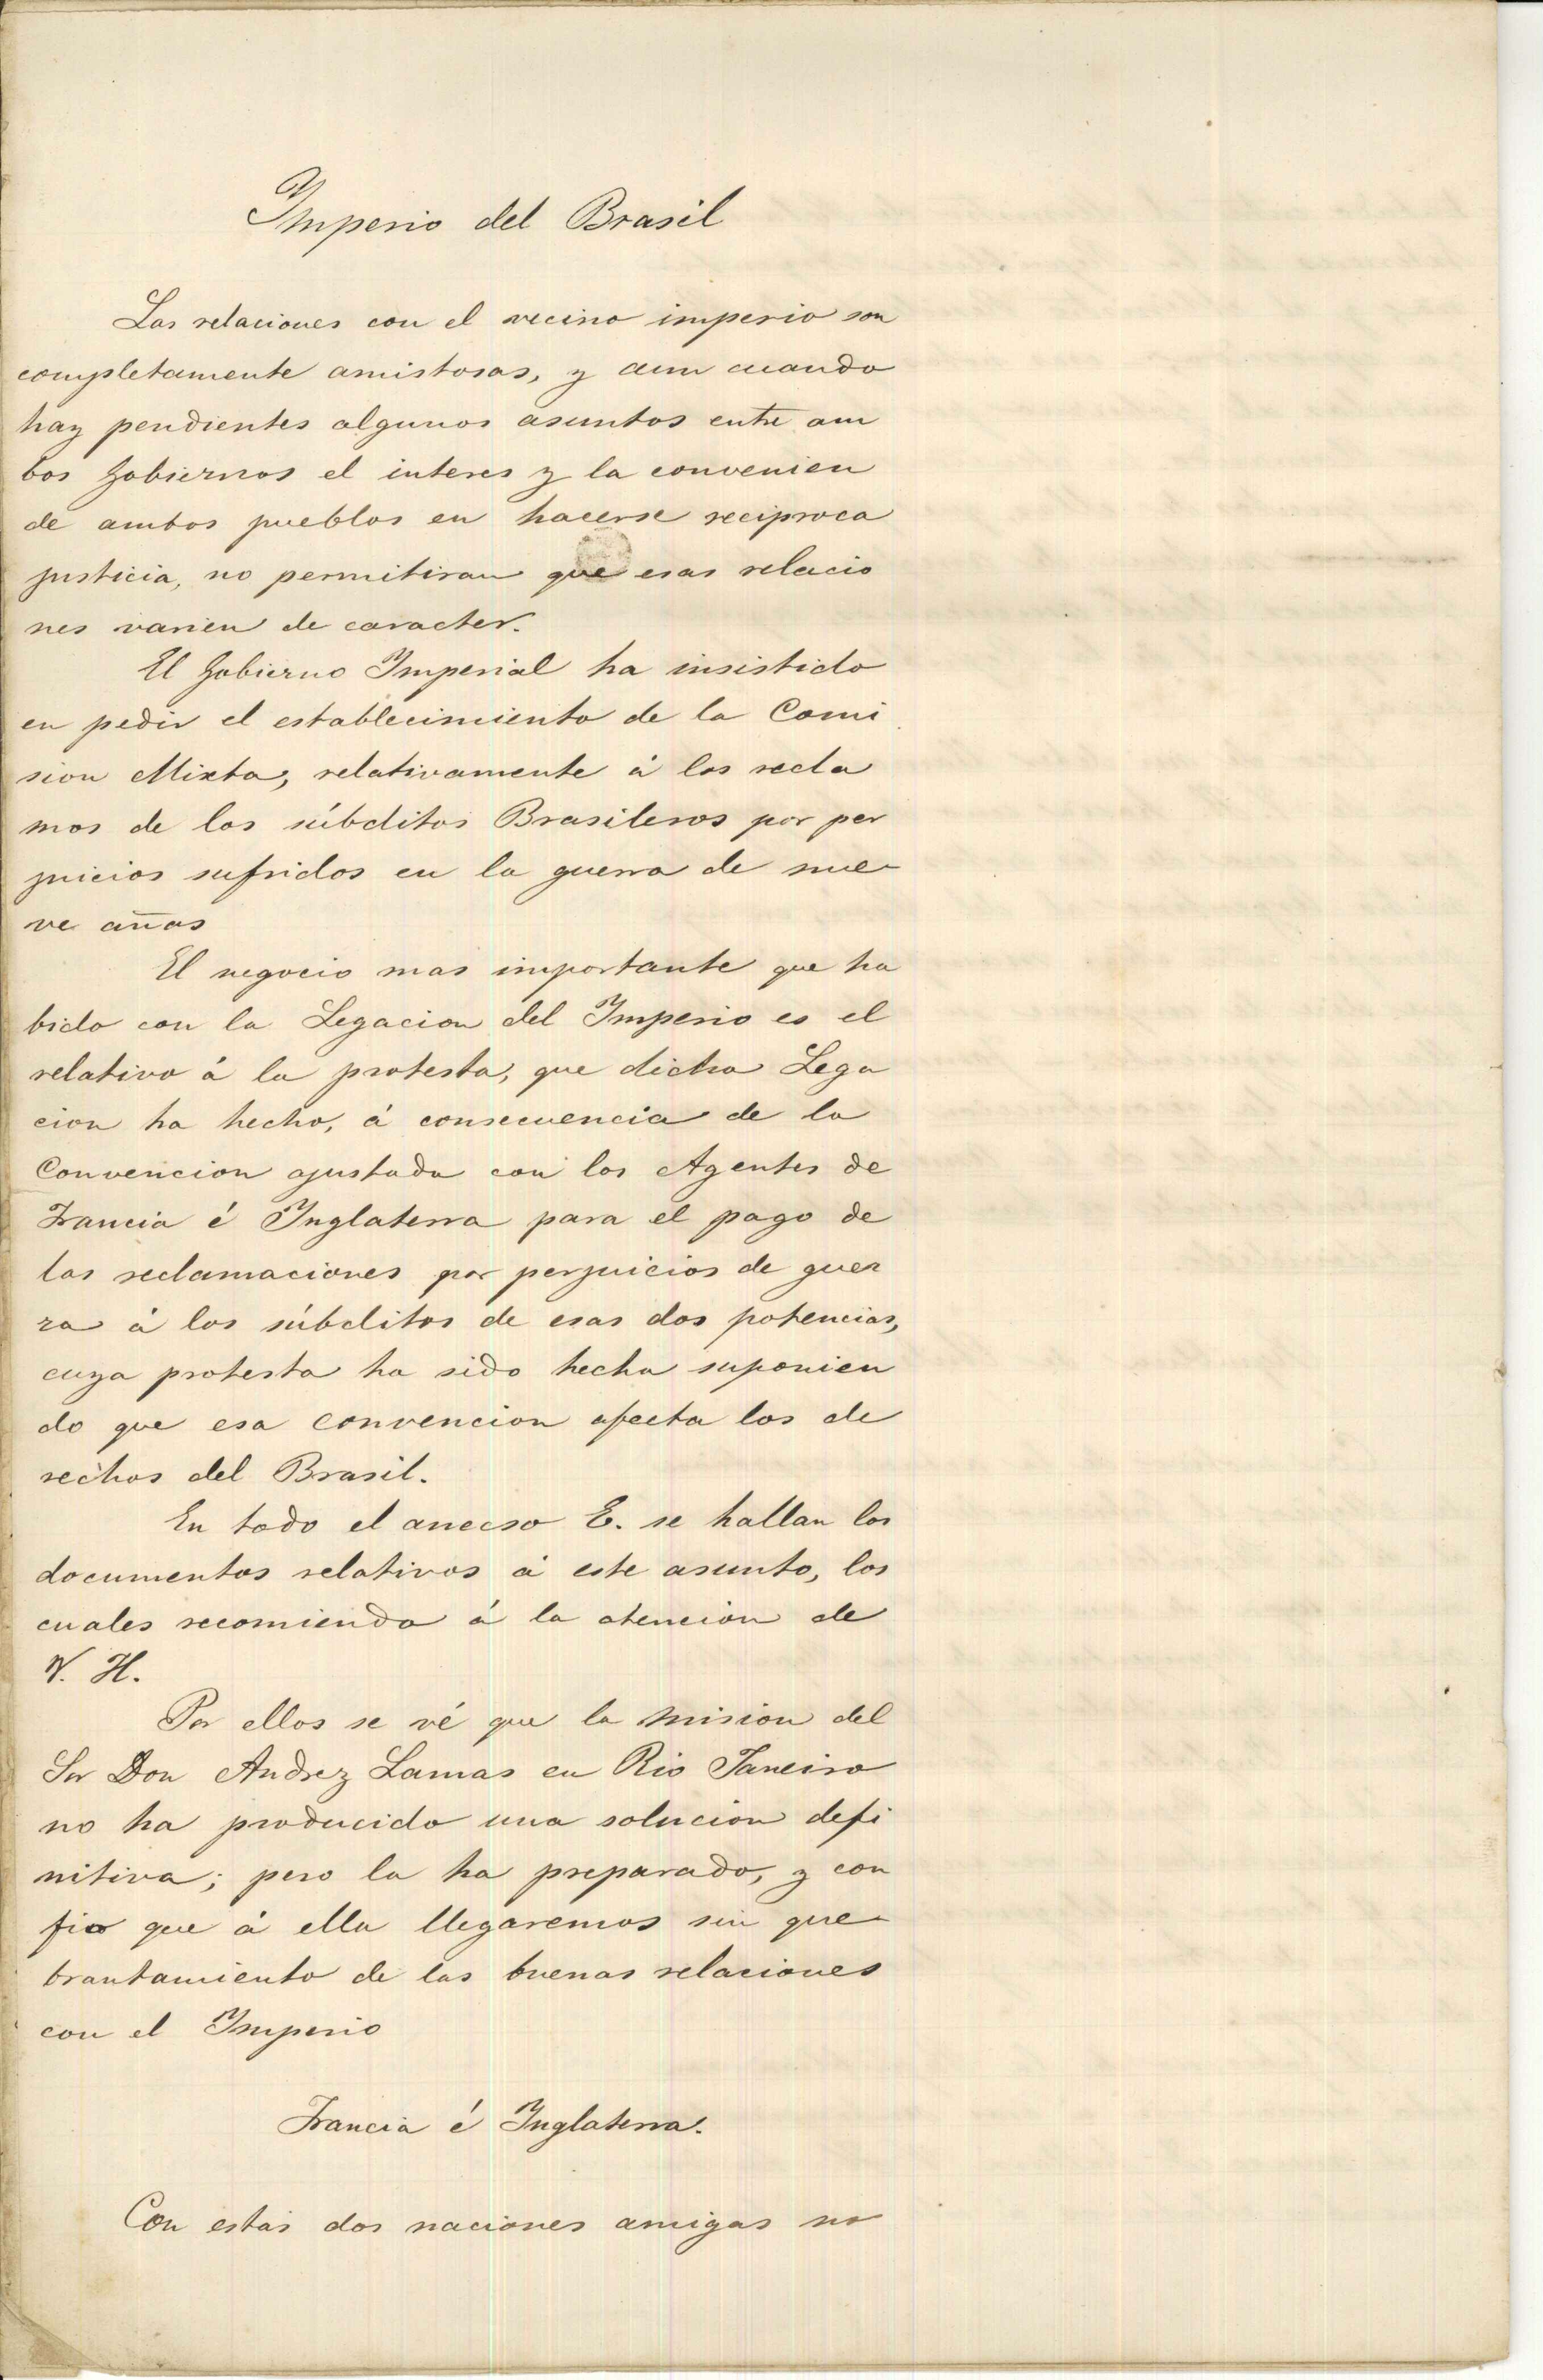 Imperio del Brasil
Las relaciones con el vecino imperio son
completamente amistosas, y aun cuando
hay pendientes algunos asuntos entre am
bos Gobiernos el interes y la convenien
de ambos pueblos en hacerse reciproca
justicia, no permitiran que esas relacio
nes varien de caracter.
El Gobierno Imperial ha insistido
en pedir el establecimiento de la Comi
sion Mixta, relativamente á los recla
mos de los súbditos Brasileros por per
juicios sufridos en la guerra de nue-
ve años
El negocio mas importante que ha
bido con la Legacion del Imperio es el
relativo á la protesta, que dicha Lega
cion ha hecho, á consecuencia de la
Convencion ajustada con los Agentes de
Francia é Inglaterra para el pago de
las reclamaciones por perjuicios de guer
ra á los súbditos de esas dos potencias,
cuya protesta ha sido hecha suponien
do que esa convencion afecta los de
rechos del Brasil.
En todo el anecso E. se hallan los
documentos relativos á este asunto, los
cuales recomiendo á la atencion de
V. H.
Por ellos se vé que la mision del
Sor Don Andrez Lamas en Rio Janeiro
no ha producido una solucion defi
nitiva; pero la ha preparado, y con
fio que á ella llegaremos sin que-
brantamiento de las buenas relaciones
con el Imperio
Francia é Inglaterra.
Con estas dos naciones amigas no